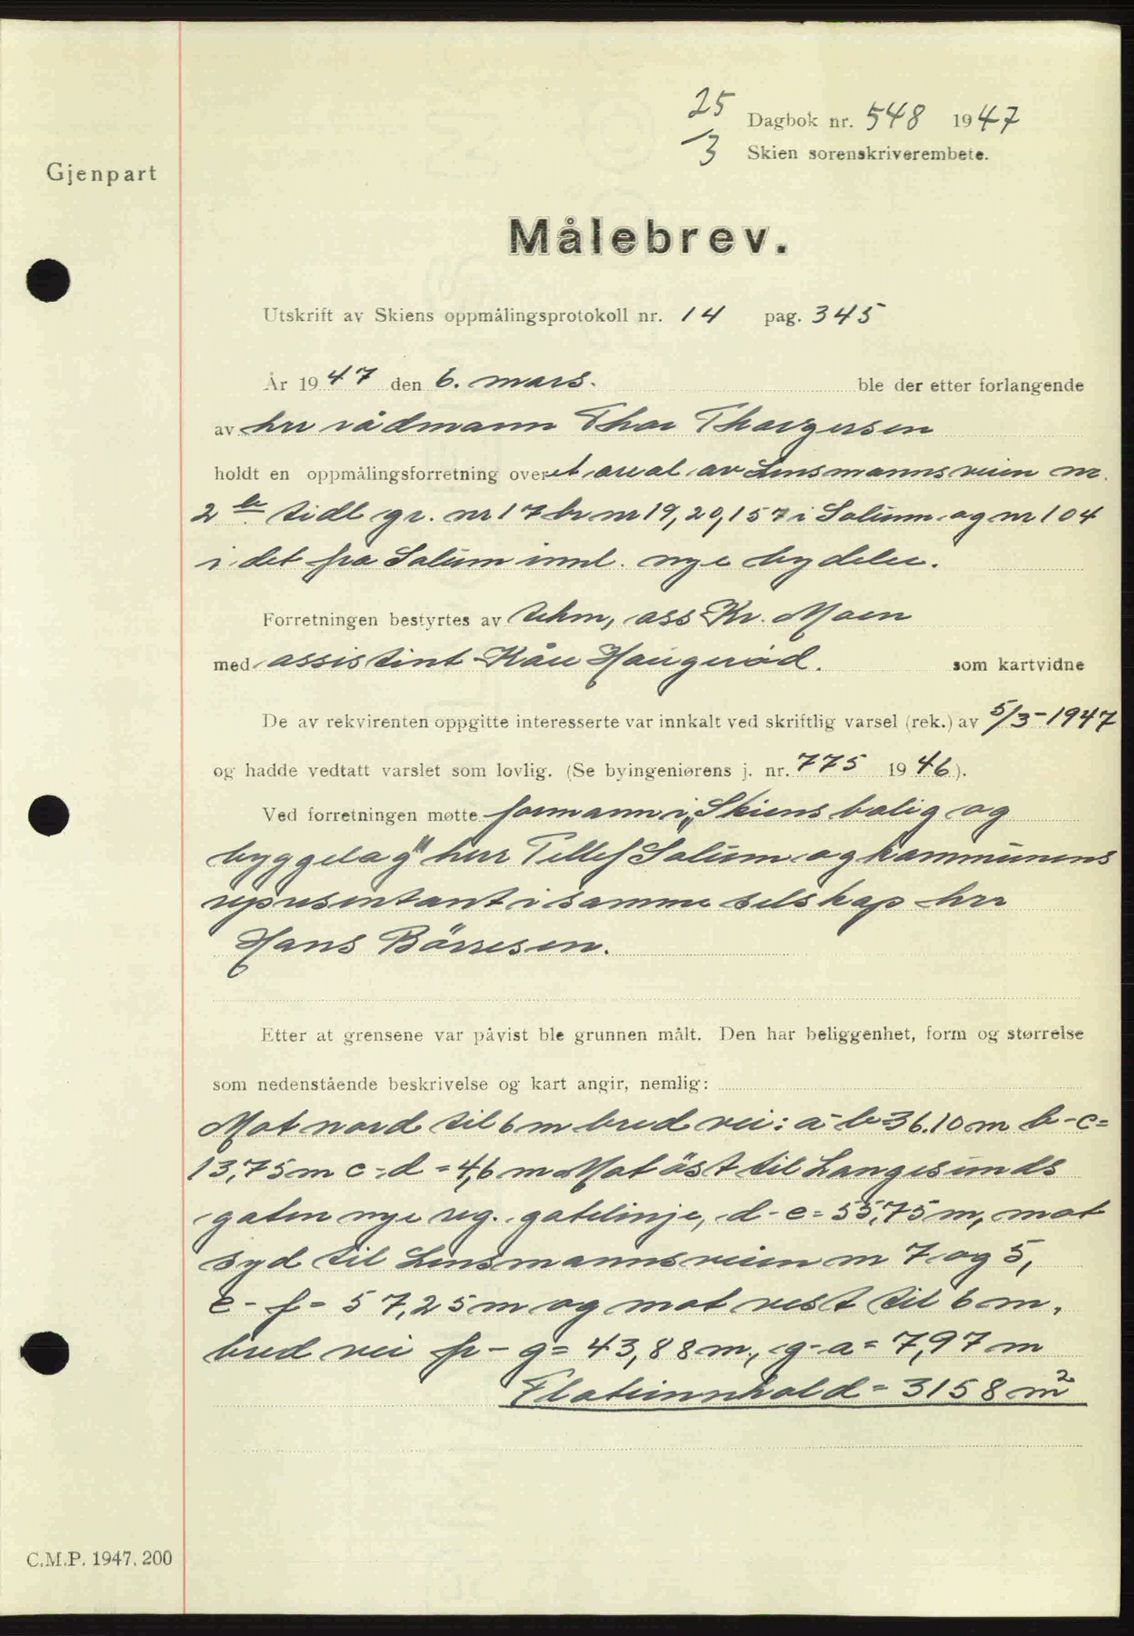 25/3 Dagbok nr. 548 1947
Skien sorenskriverembete.
Gjenpart
Målebrev.
Utskrift av Skiens oppmålingsprotokoll nr. 14 pag. 345
År 1947 den 6. mars. ble der etter forlangende
av hrr rådmann Thor Thorgersen
holdt en oppmålingsforretning over et areal av Lensmannsveien nr.
2 b tidl gr. nr 17 br nr 19, 20, 157 i Solum og nr 104
i det fra Solum innl. nye bydeler.
Forretningen bestyrtes av tekn, ass Kr. Moen
med assistent Kåre Haugerød. som kartvidne
De av rekvirenten oppgitte interesserte var innkalt ved skriftlig varsel (rek.) av 5/3-1947
og hadde vedtatt varslet som lovlig. (Se byingeniørens j. nr. 775 1946).
Ved forretningen møtte formann i "Skiens bolig og
byggelag" herr Tellef Solum og kommunens
representant i samme selskap hrr
Hans Börresen.
Etter at grensene var påvist ble grunnen målt. Den har beliggenhet, form og størrelse
som nedenstående beskrivelse og kart angir, nemlig:
Mot nord til 6 m bred vei: a-b=36.10 m b-c=
13,75 m c-d=4,6 m Mot öst til Langesunds
gaten nye reg. gatelinje, d-e=55,75 m, mot
syd til Lensmannsveien nr 7 og 5,
e-f=57,25 m og mot vest til 6 m.
bred vei f-g=43,88 m, g-a=7,97 m
Flateinnhold=3158 m²
C.M.P. 1947. 200